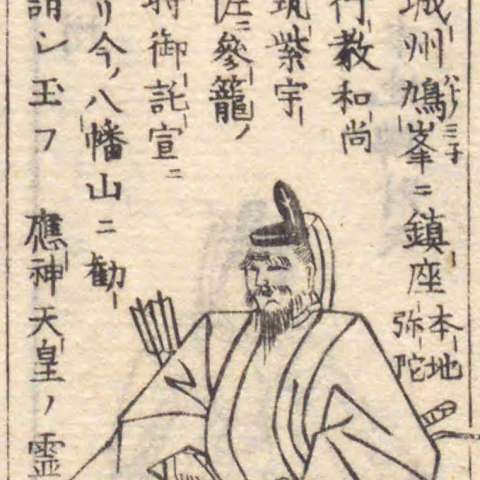 城州鳩峯ニ鎮座 本地弥陀
ハトノミ子
行教和尚
筑紫宇
佐ニ參籠ノ
時御託宣ニ
リ今ノ八幡山ニ勧
請シ玉フ 應神天皇ノ靈